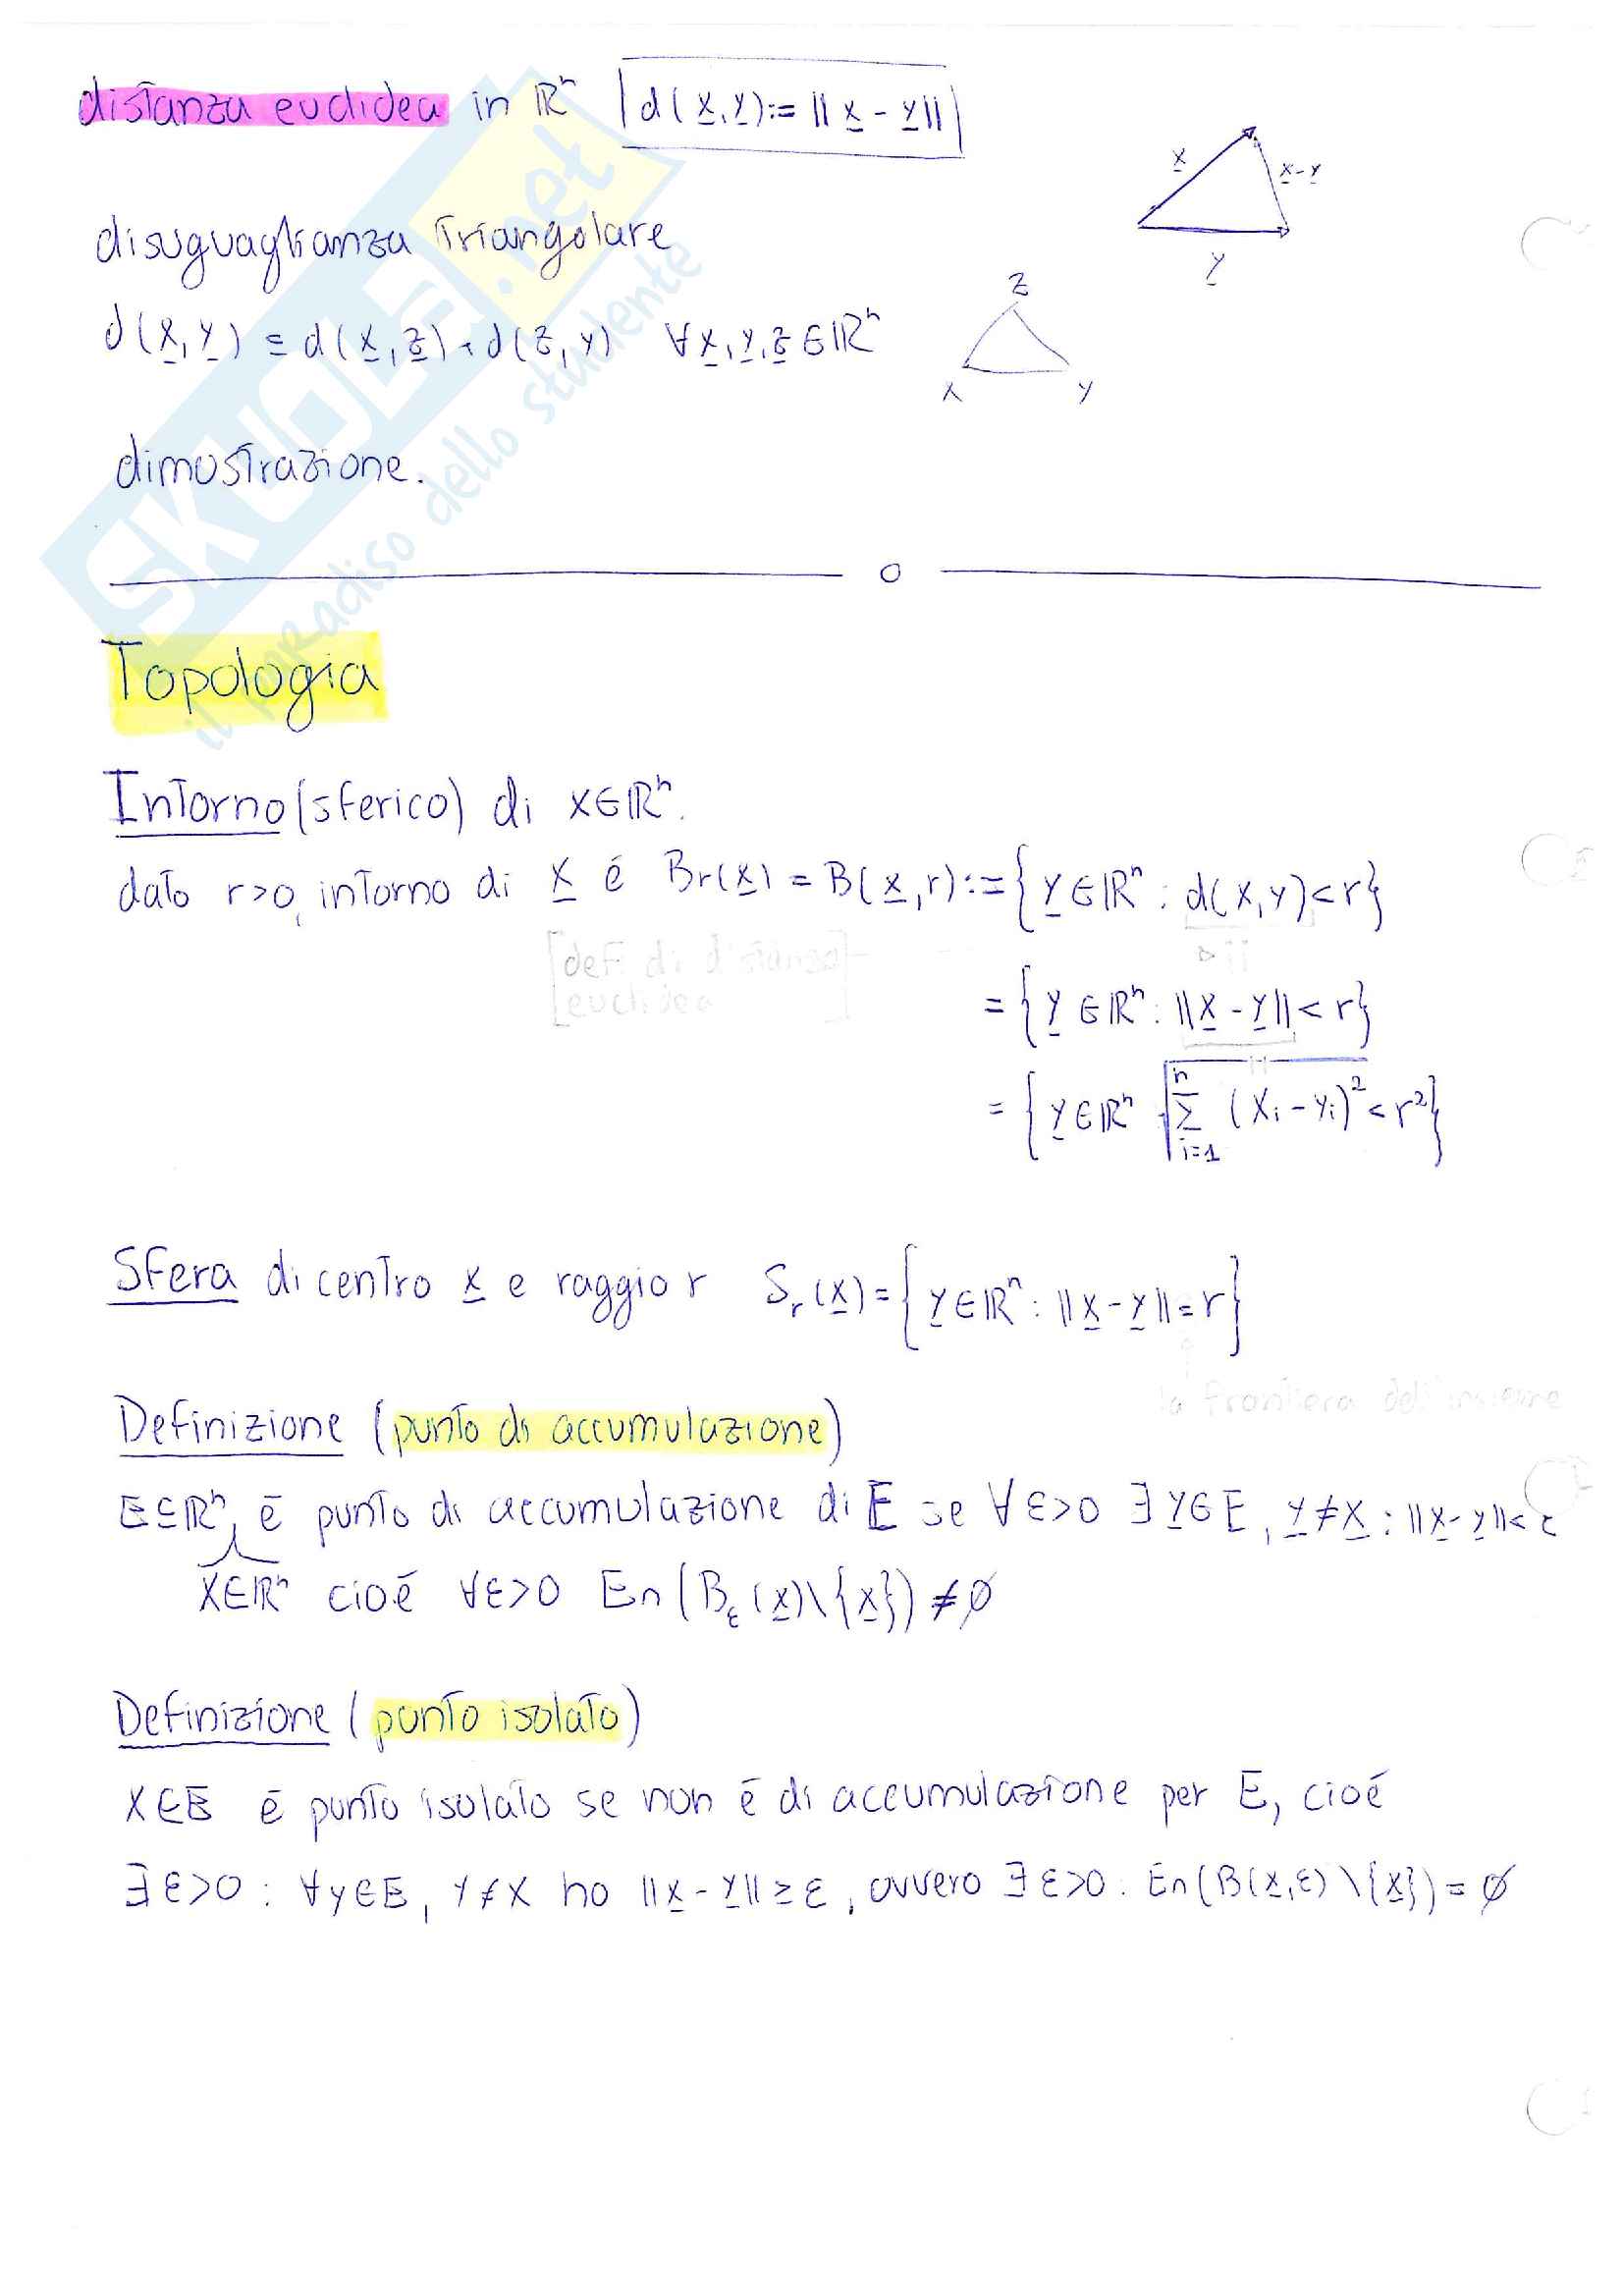 distanza euclidea in ℝⁿ d(x̲,y̲):= ||x̲-y̲||
x̲
x̲-y̲
y̲
disuguaglianza triangolare
z
d(x̲,y̲) ≤ d(x̲,z̲)+d(z,y) ∀x̲,y̲,z̲∈ℝⁿ
x y
dimostrazione.
SKUOLA.net
il paradiso dello studente
Topologia
Intorno (sferico) di x∈ℝⁿ.
dato r>0, intorno di x̲ é Br(x̲) = B(x̲,r):={y̲∈ℝⁿ: d(x,y)<r}
[def. di distanza euclidea]
={y̲∈ℝⁿ: ||x̲-y̲||<r}
={y̲∈ℝⁿ √∑ⁿᵢ₌₁ (xᵢ-yᵢ)²<r²}
Sfera di centro x̲ e raggio r Sᵣ(x̲)={y̲∈ℝⁿ: ||x̲-y̲||=r}
la frontiera dell'insieme
Definizione (punto di accumulazione)
E⊆ℝⁿ, é punto di accumulazione di E se ∀ε>0 ∃y̲∈E, y̲≠x̲: ||x̲-y̲||<ε
x∈ℝⁿ cioé ∀ε>0 E∩(B_ε(x̲)\{x̲})≠∅
Definizione (punto isolato)
x∈E é punto isolato se non é di accumulazione per E, cioé
∃ε>0: ∀y∈E, y≠x ho ||x̲-y̲||≥ε, ovvero ∃ε>0: E∩(B(x̲,ε)\{x̲})=∅